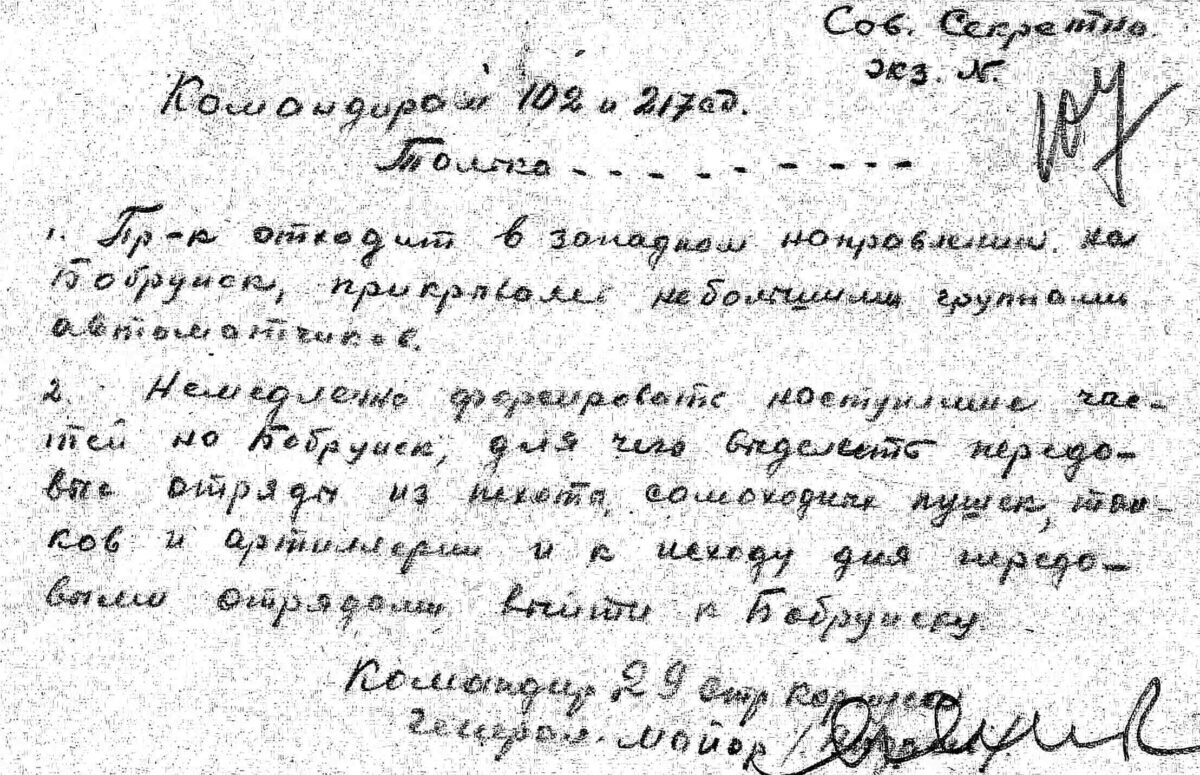 Сов. Секретно.
экз. №.
Командирам 102 и 217 сд.
Только - - - - - - - - -
1. Пр-к отходит в западном направлении на
Бобруйск, небольшими группами
автоматчиков.
2. Немедленно форсировать наступление час-
тей на Бобруйск, для чего выделить передо-
вые отряды из пехоты, самоходных пушек, тан-
ков и артиллерии и к исходу дня передо-
выми отрядами выйти к Бобруйску.
Командир 29 стр корпуса
Генерал-майор